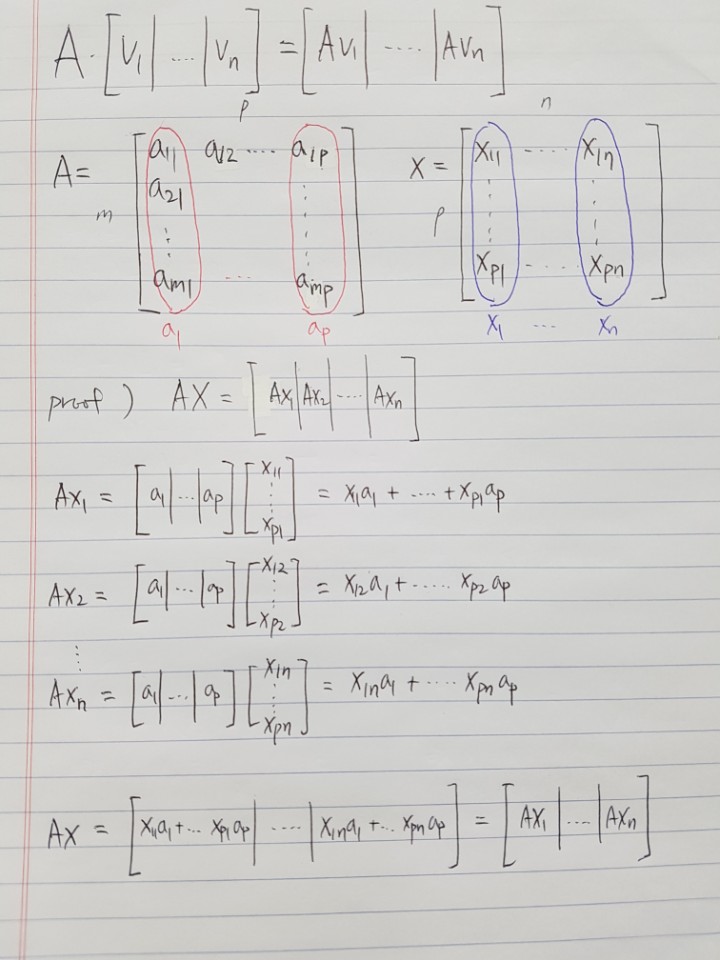 A · [V₁| ... |Vₙ] = [AV₁| ···· |AVₙ]
p n
A = m [a₁₁ a₁₂ ···· a₁ₚ
a₂₁ ⋮
⋮
aₘ₁ ··· aₘₚ]
a₁ aₚ
X = p [x₁₁ ···· x₁ₙ
⋮ ⋮
xₚ₁ ···· xₚₙ]
x₁ ... xₙ
proof ) AX = [Ax₁|Ax₂| ···· |Axₙ]
Ax₁ = [a₁| ··· |aₚ] [x₁₁ ⋮ xₚ₁] = x₁a₁ + ···· + xₚ₁aₚ
Ax₂ = [a₁| ··· |aₚ] [x₁₂ ⋮ xₚ₂] = x₁₂a₁ + ····· xₚ₂aₚ
⋮
Axₙ = [a₁| ··· |aₚ] [x₁ₙ ⋮ xₚₙ] = x₁ₙa₁ + ···· xₚₙaₚ
AX = [x₁₁a₁ + ··· xₚ₁aₚ| ···· |x₁ₙa₁ + ··· xₚₙaₚ] = [AX₁| ···· |AXₙ]